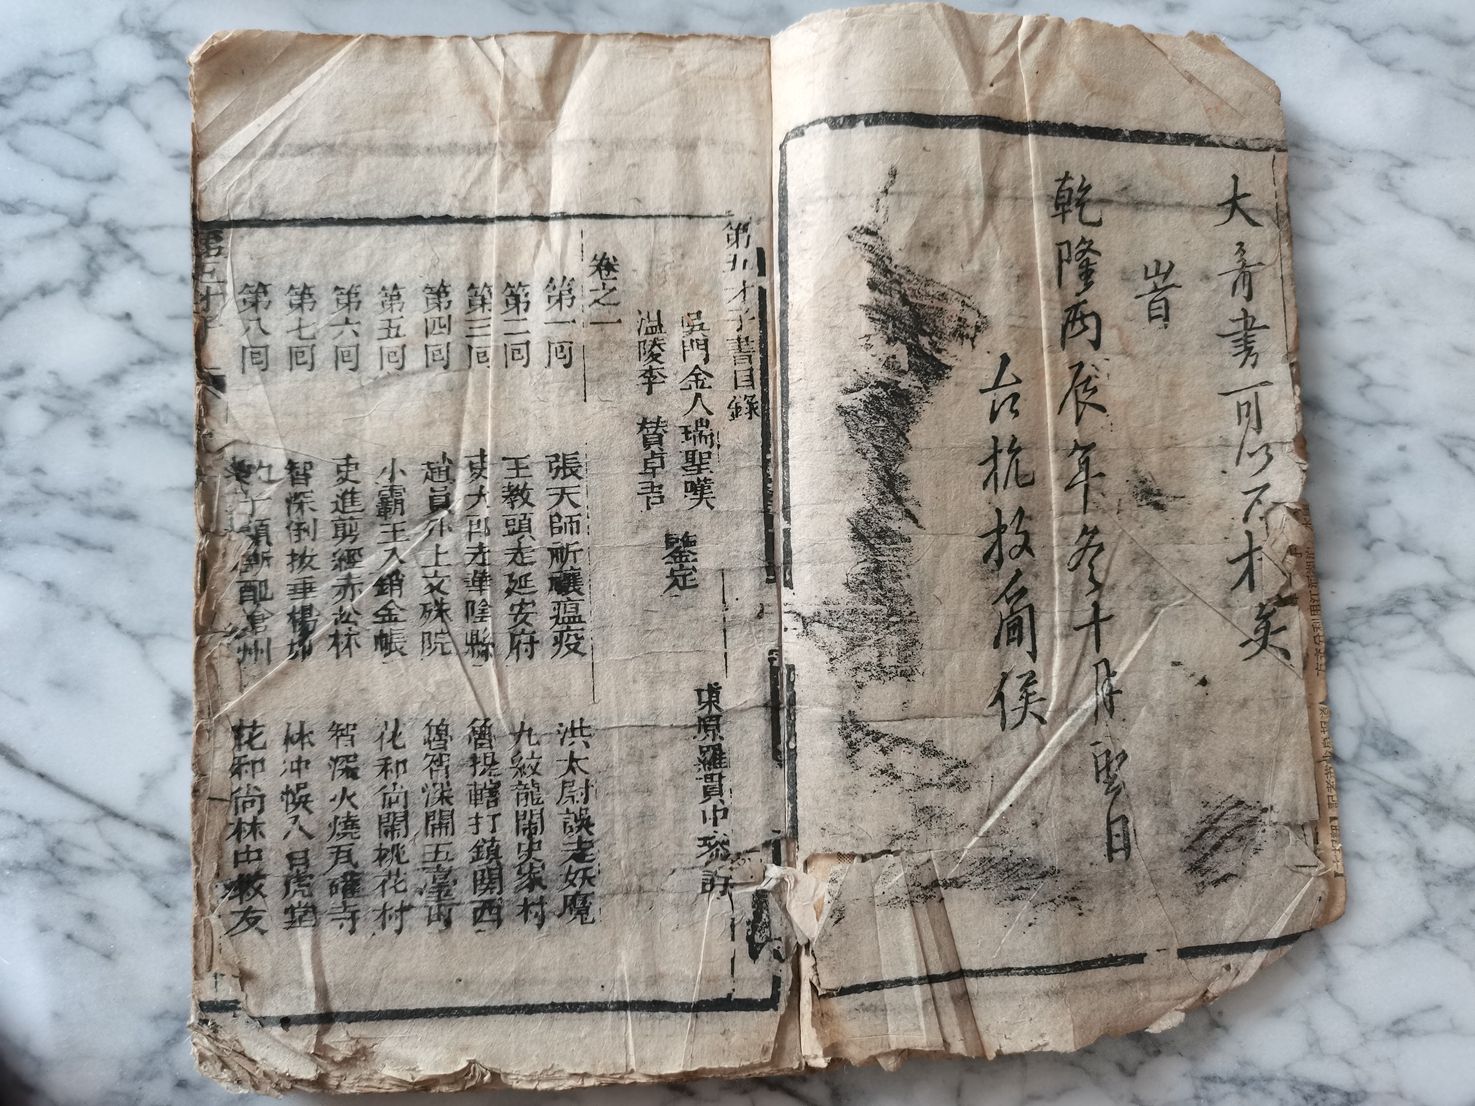 大奇書可以不朽矣
旹
乾隆丙辰年冬十月望日
古杭枚簡侯
第五才子書目錄
東原羅貫中參訂
吳門金人瑞聖嘆
溫陵李 贄卓吾
鑒定
卷之一
第一囘 張天師祈禳瘟疫 洪太尉誤走妖魔
第二囘 王教頭走延安府 九紋龍鬧史家村
第三囘 史大郎走華陰縣 魯提轄打鎮關西
第四囘 趙員外上文殊院 魯智深鬧五臺山
第五囘 小霸王入銷金帳 花和尚鬧桃花村
第六囘 史進剪經赤松林 智深火燒瓦礶寺
第七囘 智深倒拔垂楊 林沖悞入白虎堂
第八囘 配滄州 花和尚林中救友